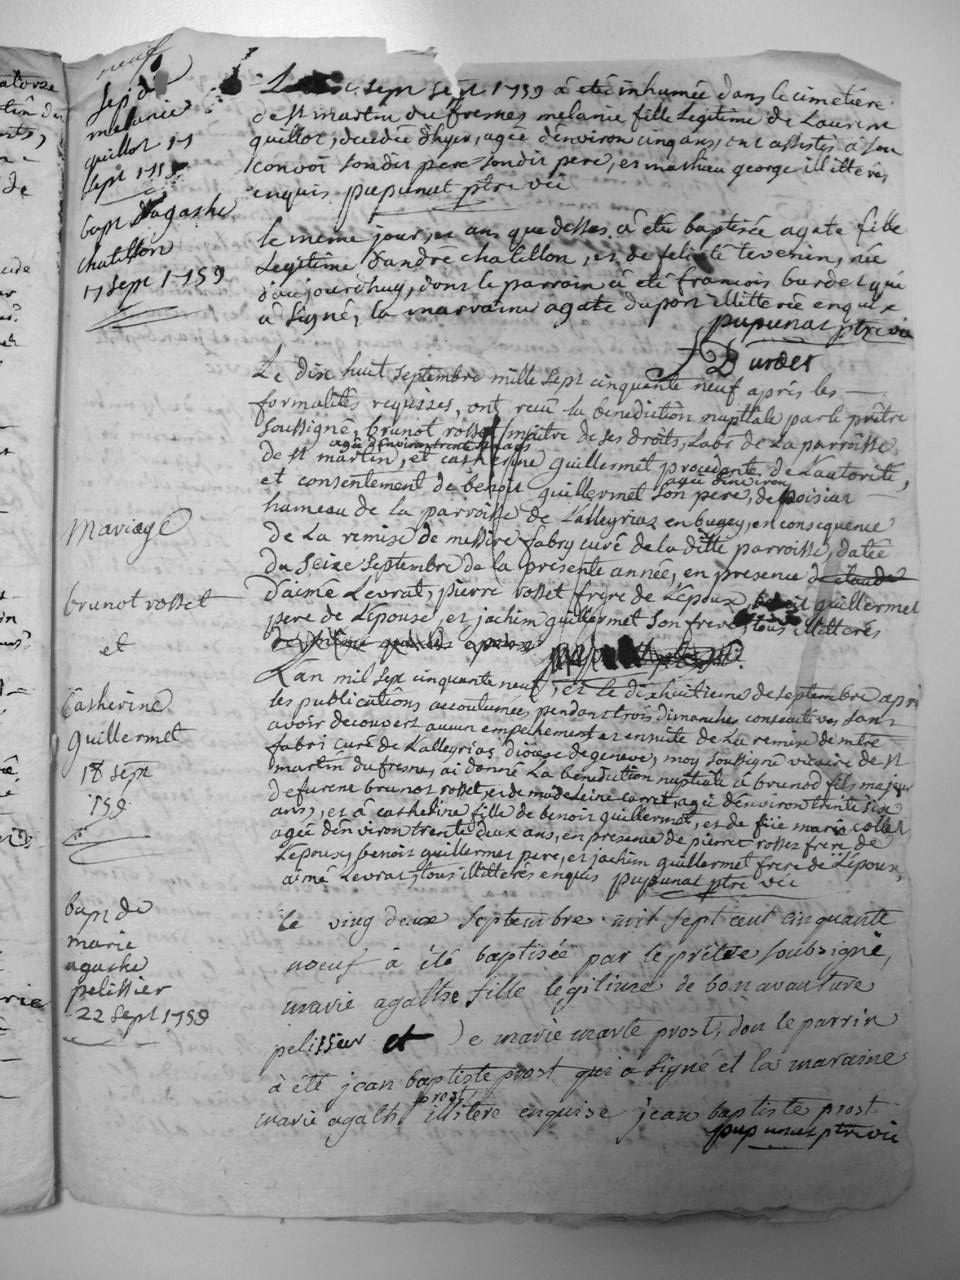 neuf
sep de
melanie
quillot 17
sept 1759
Le dix sept sept 1759 à été inhumée dans le cimetiére
de st martin du fresnes melanie fille Legitime de Laurent
quillot, decedée d'hyer, agée d'environ cinq ans, ont assistés à son
convoi son dit pere son dit pere, et mathieu george illitterés
enquis pupunat ptre vic
bapt d'agathe
chatillon
17 sept 1759
le meme jour, et ans que dessus, à été baptisée agate fille
Legitime d'andré chatillon, et de felicité tevenin, née
d'aujourd'huy, dont le parrain à été francois burdet qui
à signé, la marraine agate dupont illitterée enquise
pupunat ptre vic
f Burdet
Mariage
brunot rosset
et
Catherine
Guillermet
18 sept
1759
Le dix huit septembre mille sept cinquante neuf aprés les
formalités requises, ont recu la benediction nuptiale par le prêtre
soussigné, brunot rosset maitre de ses droits, Labr de La parroisse
agé d'environ trente six ans
de st martin, et catherine Guillermet procedente de L'autorité,
agée d'environ
et consentement de benoit guillermet son pere, de poisiat
hameau de la parroisse de Lalleyriaz en bugey, en consequence
de La remise de messire fabry curé de la ditte parroisse, datée
du Seize Septembre de la presente année, en presence
d'aimé Levrat, pierre rosset frere de L'epoux, benoit guillermet
pere de L'epouse, et jachim guillermet son frere, tous illitterés
L'an mil sept cinquante neuf, et le dixhuitieme de septembre apres
les publications accoutumées pendant trois dimanches consecutives sans
avoir decouvert aucun empechement et ensuite de La remise de mtre
fabri curé de Lalleyriaz diocese de geneve, moy soussigné vicaire de st
martin du fresne, ai donné La benediction nuptiale à brunod fils majeur
de furent brunot rosset, et de madeleine carret, agé d'environ trente six
ans, et à catherine fille de benoit guillermet, et de feüe marie collet
agée d'environ trente deux ans, en presence de pierre rosset frere de
L'epoux, benoit guillermet pere, et jachim guillermet frere de L'epouse,
aimé Levrat, tous illitterés enquis pupunat ptre vic
bapt de
marie
agathe
pelissier
22 sept 1759
le ving deux Septembre mil sept cent cinquante
noeuf à été baptisée par le prétre soubsigné,
marie agathe fille légitime de bonavanture
pelisseur et de marie marte prost, don le parrin
à été jean baptiste prost que à signé et la maraine
prost
marie agathe illitere enquise jean baptiste prost
pupunat ptre vic